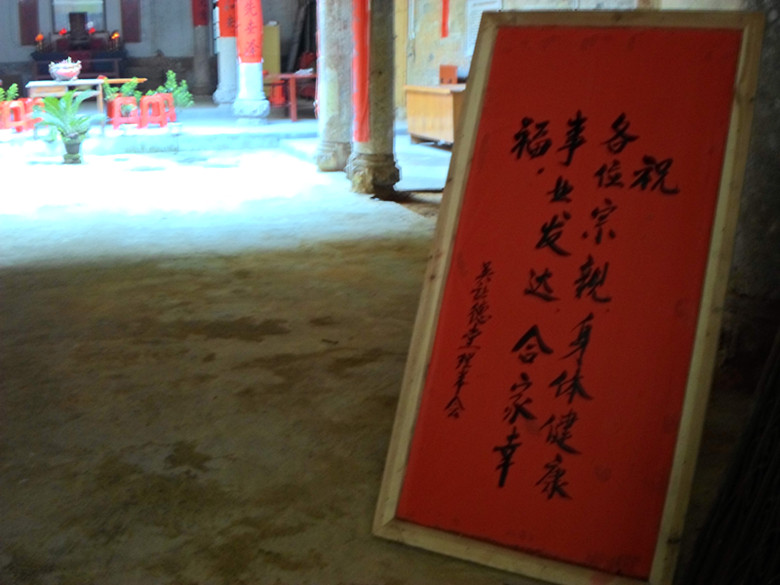 祝
各位宗亲身体健康
事业发达合家幸
福.
让德堂理事会